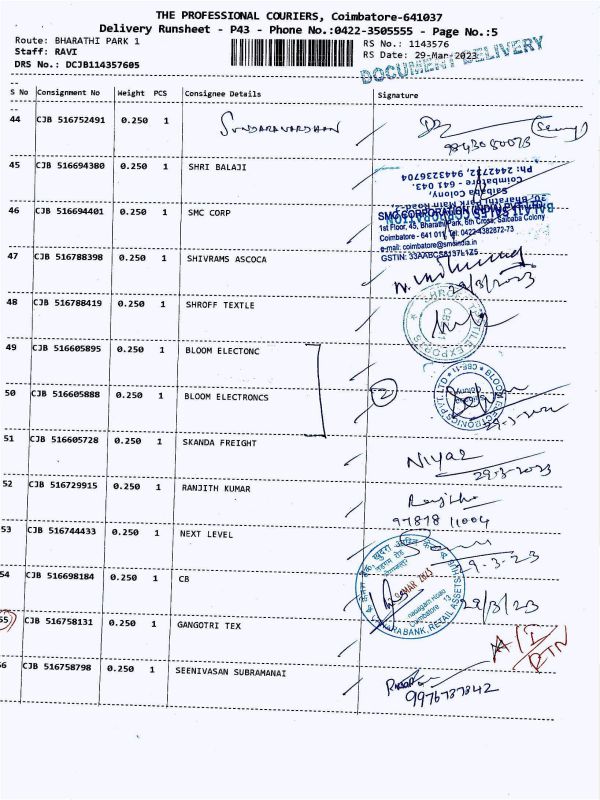 THE PROFESSIONAL COURIERS, Coimbatore-641037
Delivery Runsheet - P43 - Phone No.:0422-3505555 - Page No.:5
Route: BHARATHI PARK 1
RS No.: 1143576
Staff: RAVI
RS Date: 29-Mar-2023
DRS No.: DCJB114357605
DOCUMENT DELIVERY
S No Consignment No Weight PCS Consignee Details Signature
44 CJB 516752491 0.250 1
9843080073
45 CJB 516694380 0.250 1 SHRI BALAJI
Ph: 2442732, 9943236704
Coimbatore - 641 043.
Saibaba Colony,
46 CJB 516694401 0.250 1 SMC CORP
SMC CORPORATION (INDIA) PVT LTD
1st Floor, 45, Bharathi Park, 6th Cross, Saibaba Colony
Coimbatore - 641 011, Tel: 0422-4382872-73
e-mail: coimbatore@smcindia.in
47 CJB 516788398 0.250 1 SHIVRAMS ASCOCA
29/3/2023
48 CJB 516788419 0.250 1 SHROFF TEXTLE
49 CJB 516605895 0.250 1 BLOOM ELECTONC
50 CJB 516605888 0.250 1 BLOOM ELECTRONCS
2
51 CJB 516605728 0.250 1 SKANDA FREIGHT
NIYAZ
29-3-2023
52 CJB 516729915 0.250 1 RANJITH KUMAR
97878 11004
53 CJB 516744433 0.250 1 NEXT LEVEL
29.3.23
54 CJB 516698184 0.250 1 CB
29/3/23
55 CJB 516758131 0.250 1 GANGOTRI TEX
RTN
56 CJB 516758798 0.250 1 SEENIVASAN SUBRAMANAI
9976737342